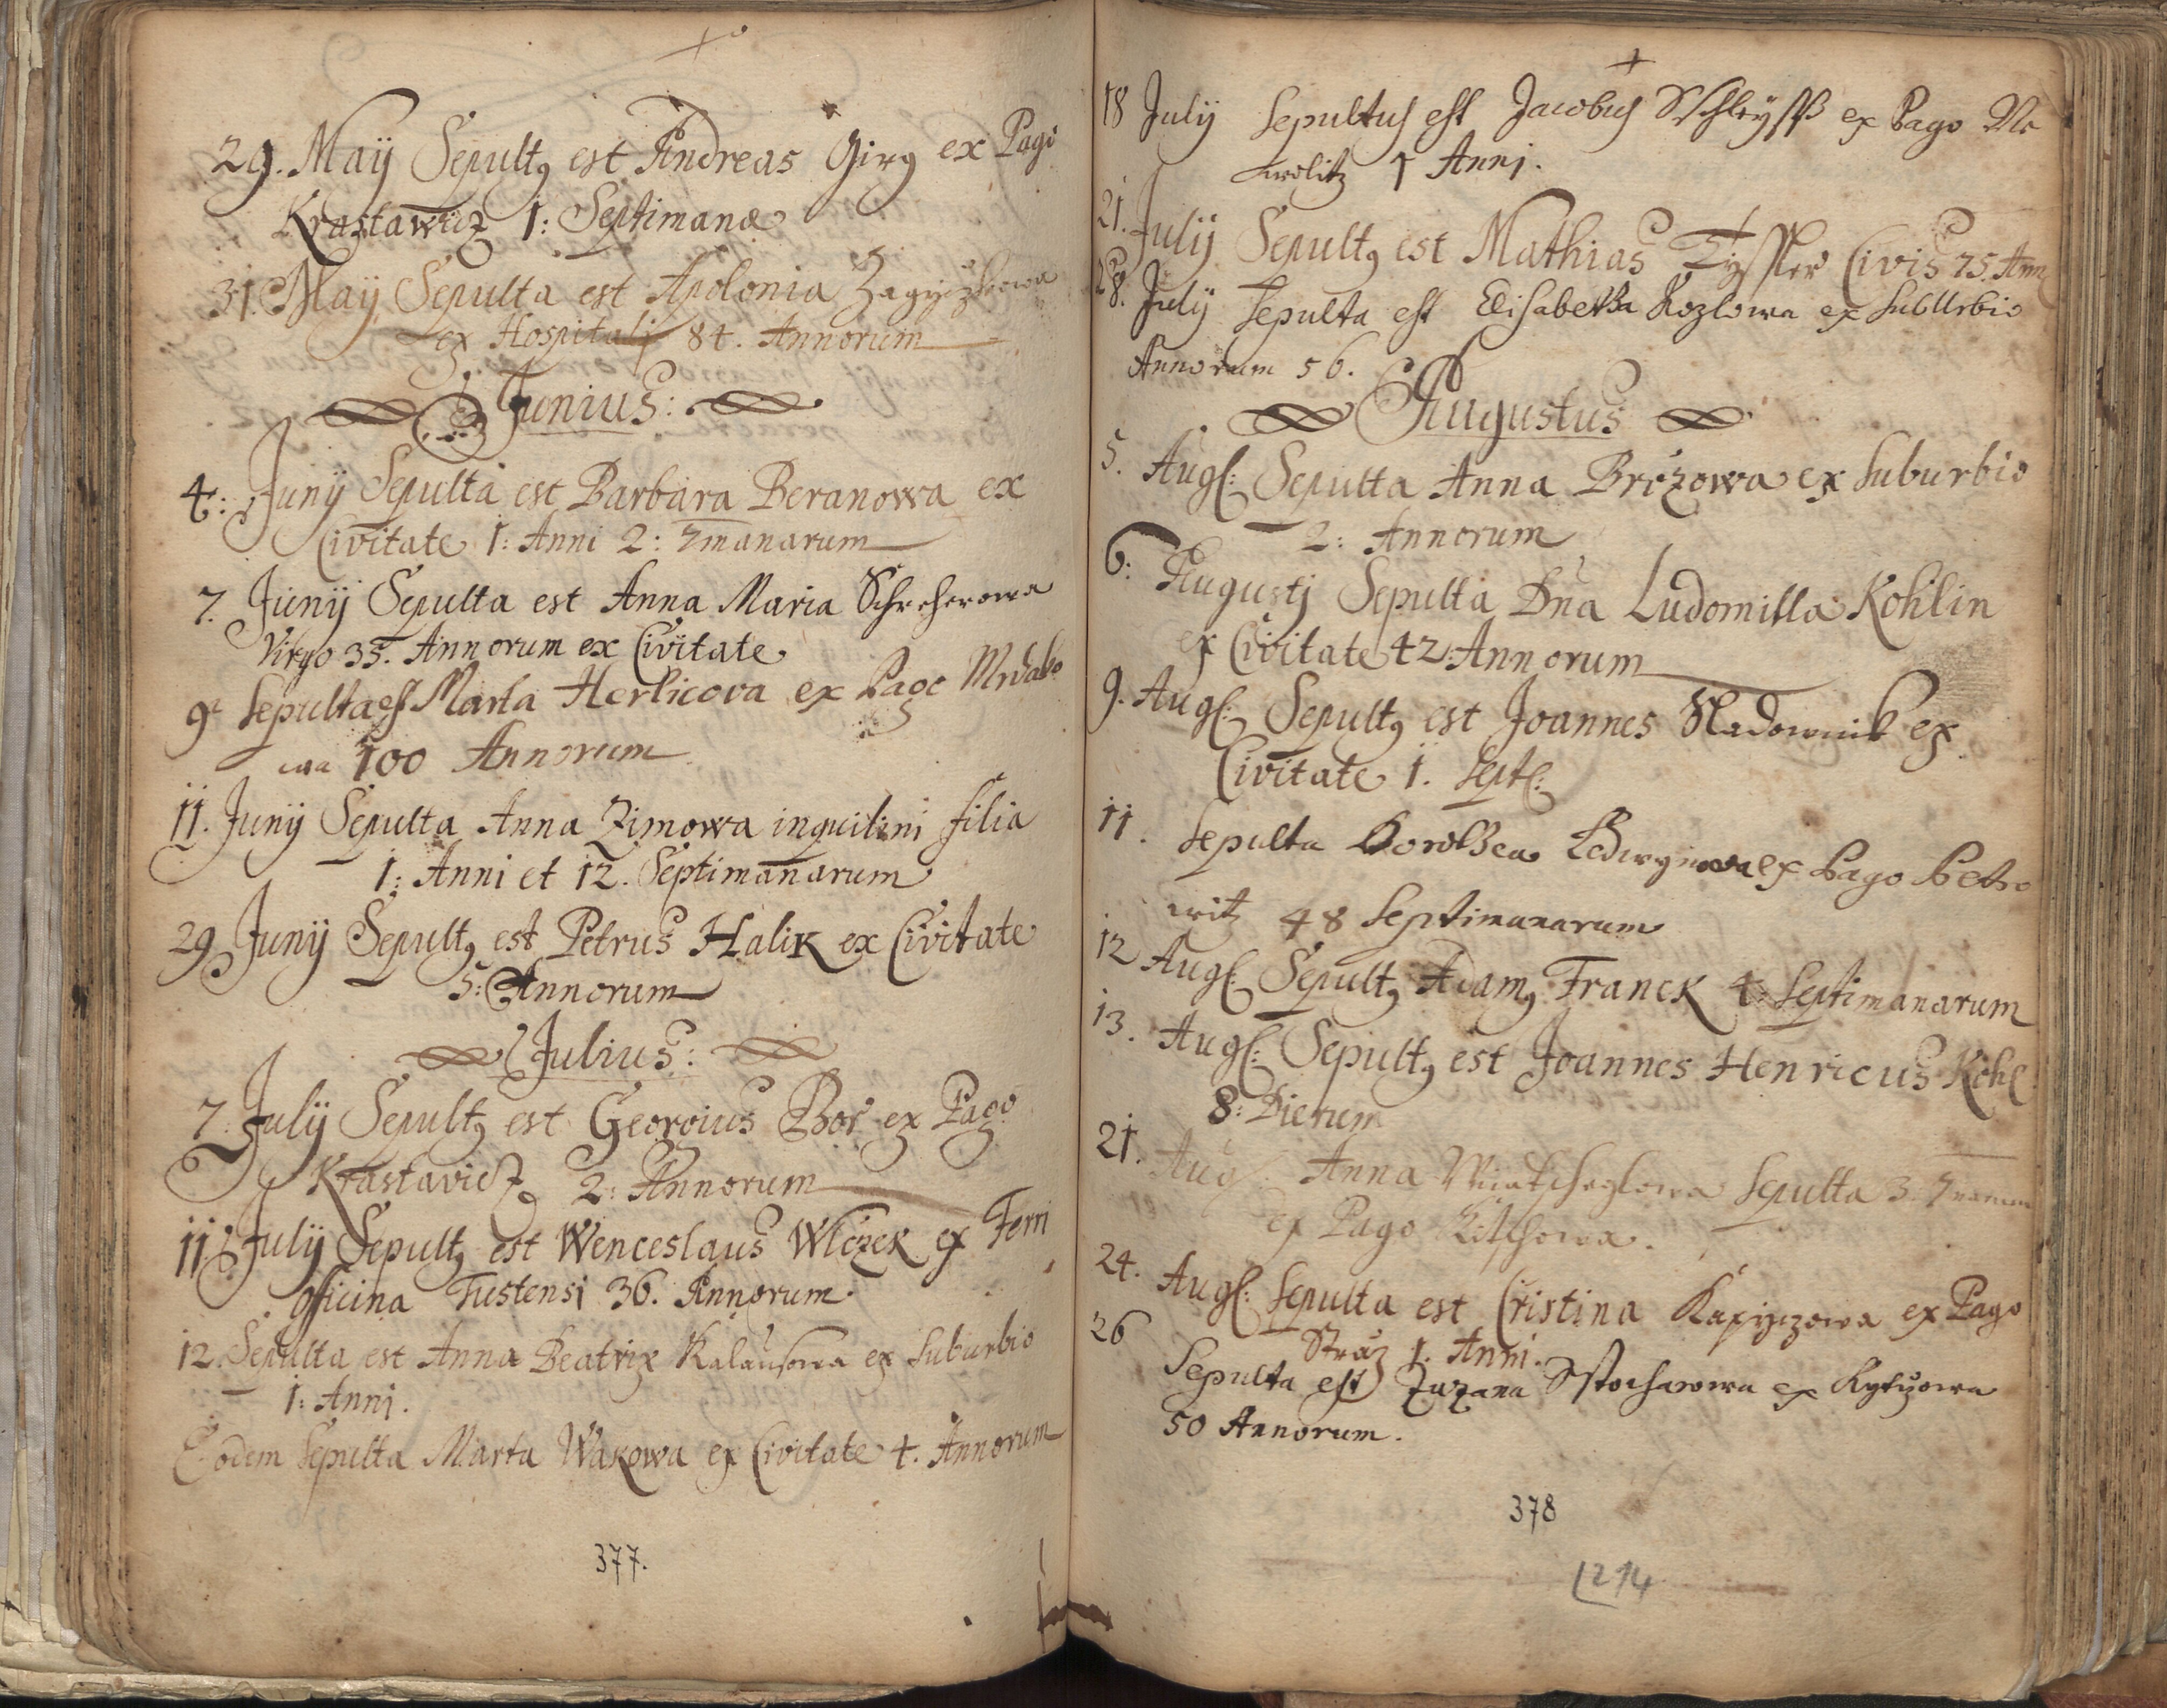 29. Maÿ Sepultꝰ est Andreas Girꝰ ex Pago
Krastawicz 1: Septimanæ
31. Maÿ Sepulta est Apolonia Zagyczkowa
ex Hospitali 84. Annorum
Junius:
4: Junÿ Sepulta est Barbara Beranowa ex
Civitate 1: Anni 2: 7manarum
7. Junÿ Sepulta est Anna Maria Schreherowa
Virgo 35. Annorum ex Civitate
9 Sepulta est Marta Herlicova ex Pago Mrdako
wa 100 Annorum
11. Junÿ Sepulta Anna Zimowa inquilini filia
1: Anni et 12. Septimanarum
29 Junÿ Sepultꝰ est Petrus Halik ex Civitate
5: Annorum
Julius:
7. Julÿ Sepultꝰ est Georgius Bor ex Pago
Krastavicz 2: Annorum
11 Julÿ Sepultꝰ est Wenceslaus Wlczek ex Ferri
officina Tustensi 36. Annorum
12. Sepulta est Anna Beatrix Kalausowa ex Suburbio
1: Anni.
Eodem Sepulta Marta Wakowa ex Civitate 4. Annorum
377.
18 Julÿ Sepultus est Jacobus ex Pago Ne
krolitz 1 Anni.
21. Julÿ Sepultꝰ est Mathias Tyssler Civis 75. Ann
28. July Sepulta est Elisabetha Kozlowa ex Suburbio
Annorum 56.
Augustus
5. Aug: Sepulta Anna Brczowa ex Suburbio
2: Annorum
6: Augusti Sepulta Dña Ludomilla Kohlin
ex Civitate 42 Annorum
9. Aug: Sepultꝰ est Joannes Sladownik ex
Civitate 1. Sept:
11. Sepulta Dorothea Ledwynowa ex Pago Petro
witz 48 Septimanarum
12 Aug: Sepultꝰ Adamꝰ Franck 4: Septimanarum
13. Aug: Sepultꝰ est Joannes Henricus Kohl
8: Dierum
21. Aug: Anna Sepulta 3. 7manarum
ex Pago Kitschowa.
24. Aug: Sepulta est Cristina Kapinzowa ex Pago
Straz 1. Anni.
26 Sepulta est Zuzana Sstochawowa ex Kytzowa
50 Annorum.
378
214